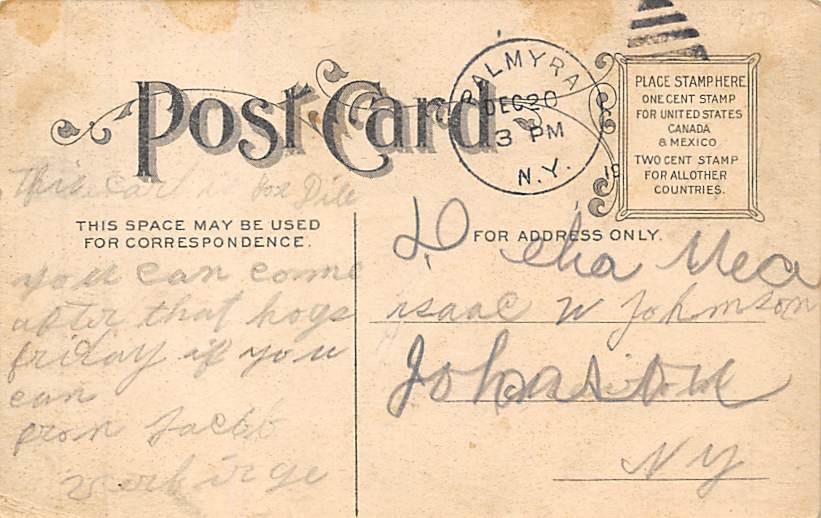 Post Card
PALMYRA
DEC 20
3 PM
N.Y.
19
PLACE STAMP HERE
ONE CENT STAMP
FOR UNITED STATES
CANADA
& MEXICO
TWO CENT STAMP
FOR ALL OTHER
COUNTRIES.
This card is for
THIS SPACE MAY BE USED
FOR CORRESPONDENCE.
you can come
after that hogs
friday if you
can
from Jacob
FOR ADDRESS ONLY.
isaac W Johnson
NY